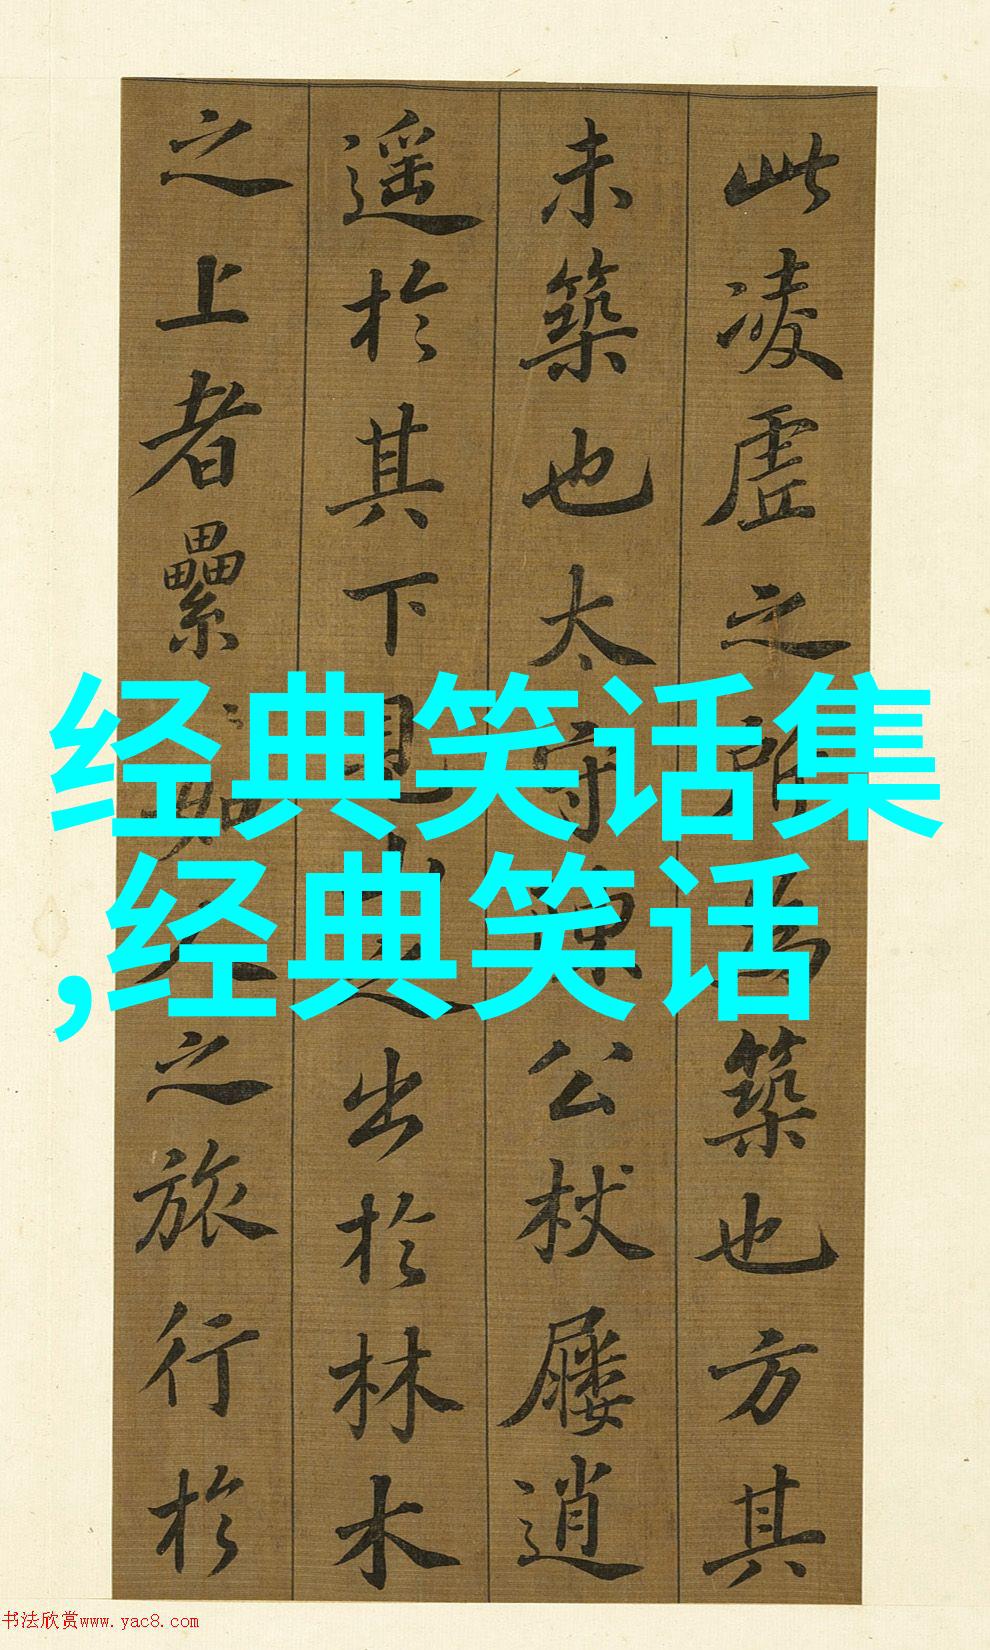 此凌虚之所為築也方其
未築也太守陳公杖屨逍
遥於其下見山之出於林木
之上者纍〻如人之旅行於
经典笑话集
,经典笑话
书法欣赏www.yac8.com